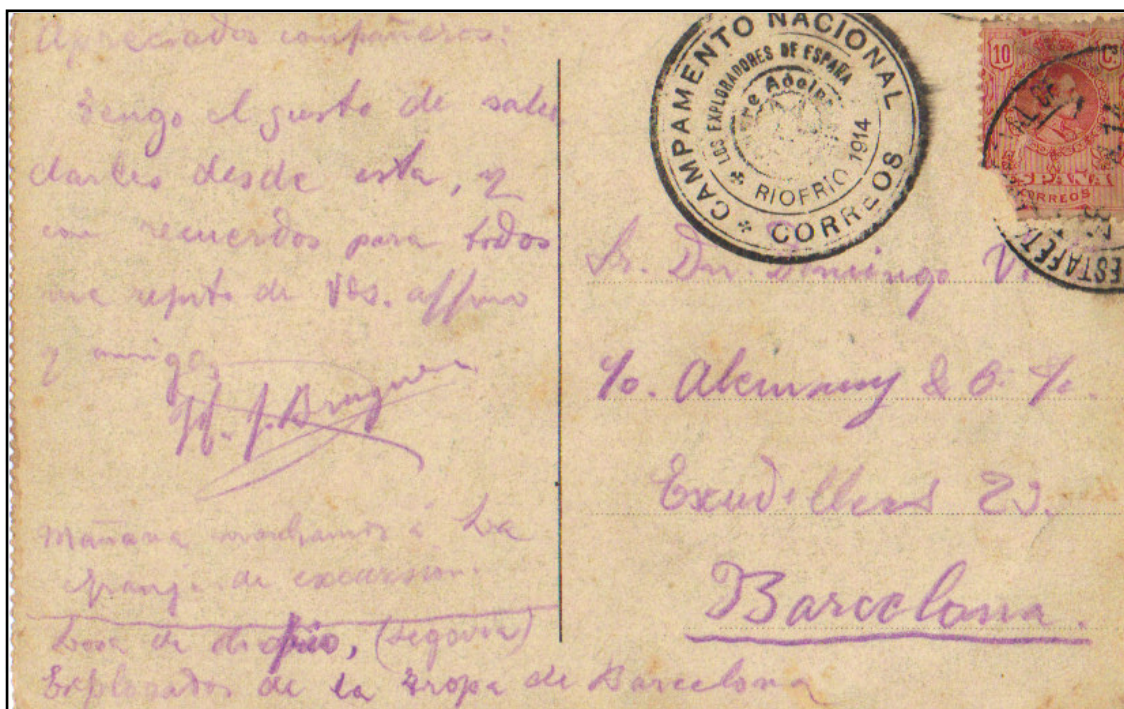 Apreciados compañeros:
Tengo el gusto de salu
darles desde esta, y
con recuerdos para todos
me repito de Vds. affmo
y amigo,
Mañana marchamos á La
Granja de excursion.
Losa de Riofrio, (Segovia)
Explorador de la Tropa de Barcelona
CAMPAMENTO NACIONAL
LOS EXPLORADORES DE ESPAÑA
RIOFRIO 1914
CORREOS
10 Cs
CORREOS
ESTAFETA
Sr. Dn. Domingo
c/o. Alemany &
Escudillers 23.
Barcelona.